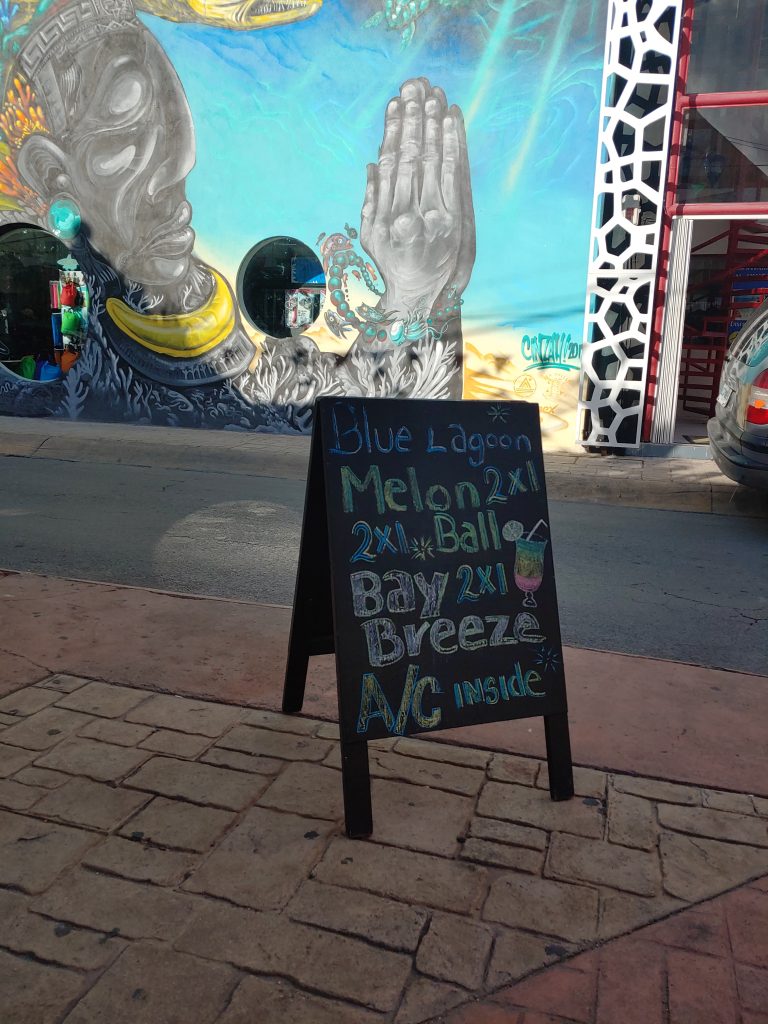 Blue Lagoon
Melon 2x1
2x1 Ball
Bay 2x1
Breeze
A/C inside